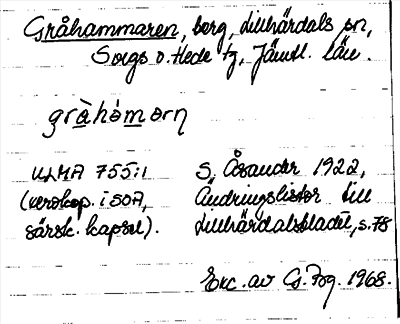 Gråhammaren, berg, Lillhärdals sn,
Svegs o. Hede tg, Jämtl. län.
gràhȧmorn
ULMA 755:1 S. Åsander 1922,
(xerokop. i SOA, Ändringslistor till
särsk. kapsel). Lillhärdalsbladet, s. 78
Exc. av Cs. Fog. 1968.